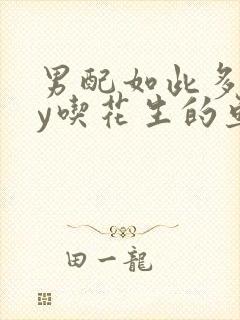 男配如此多
y喫花生的
田一龍